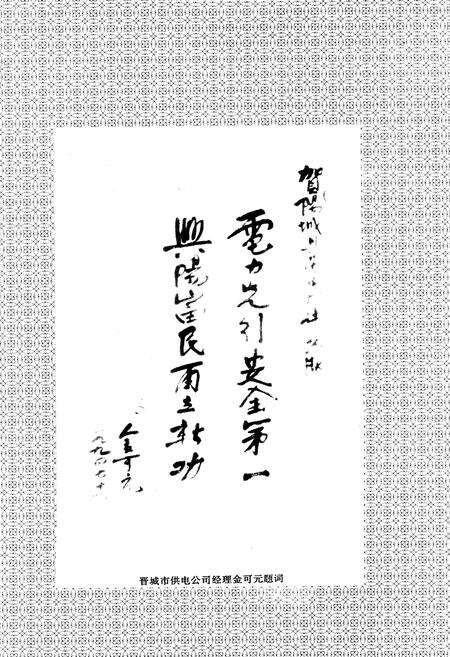 賀陽城
電力先行安全第一
興陽富民再立新功
金可元
晋城市供电公司经理金可元题词